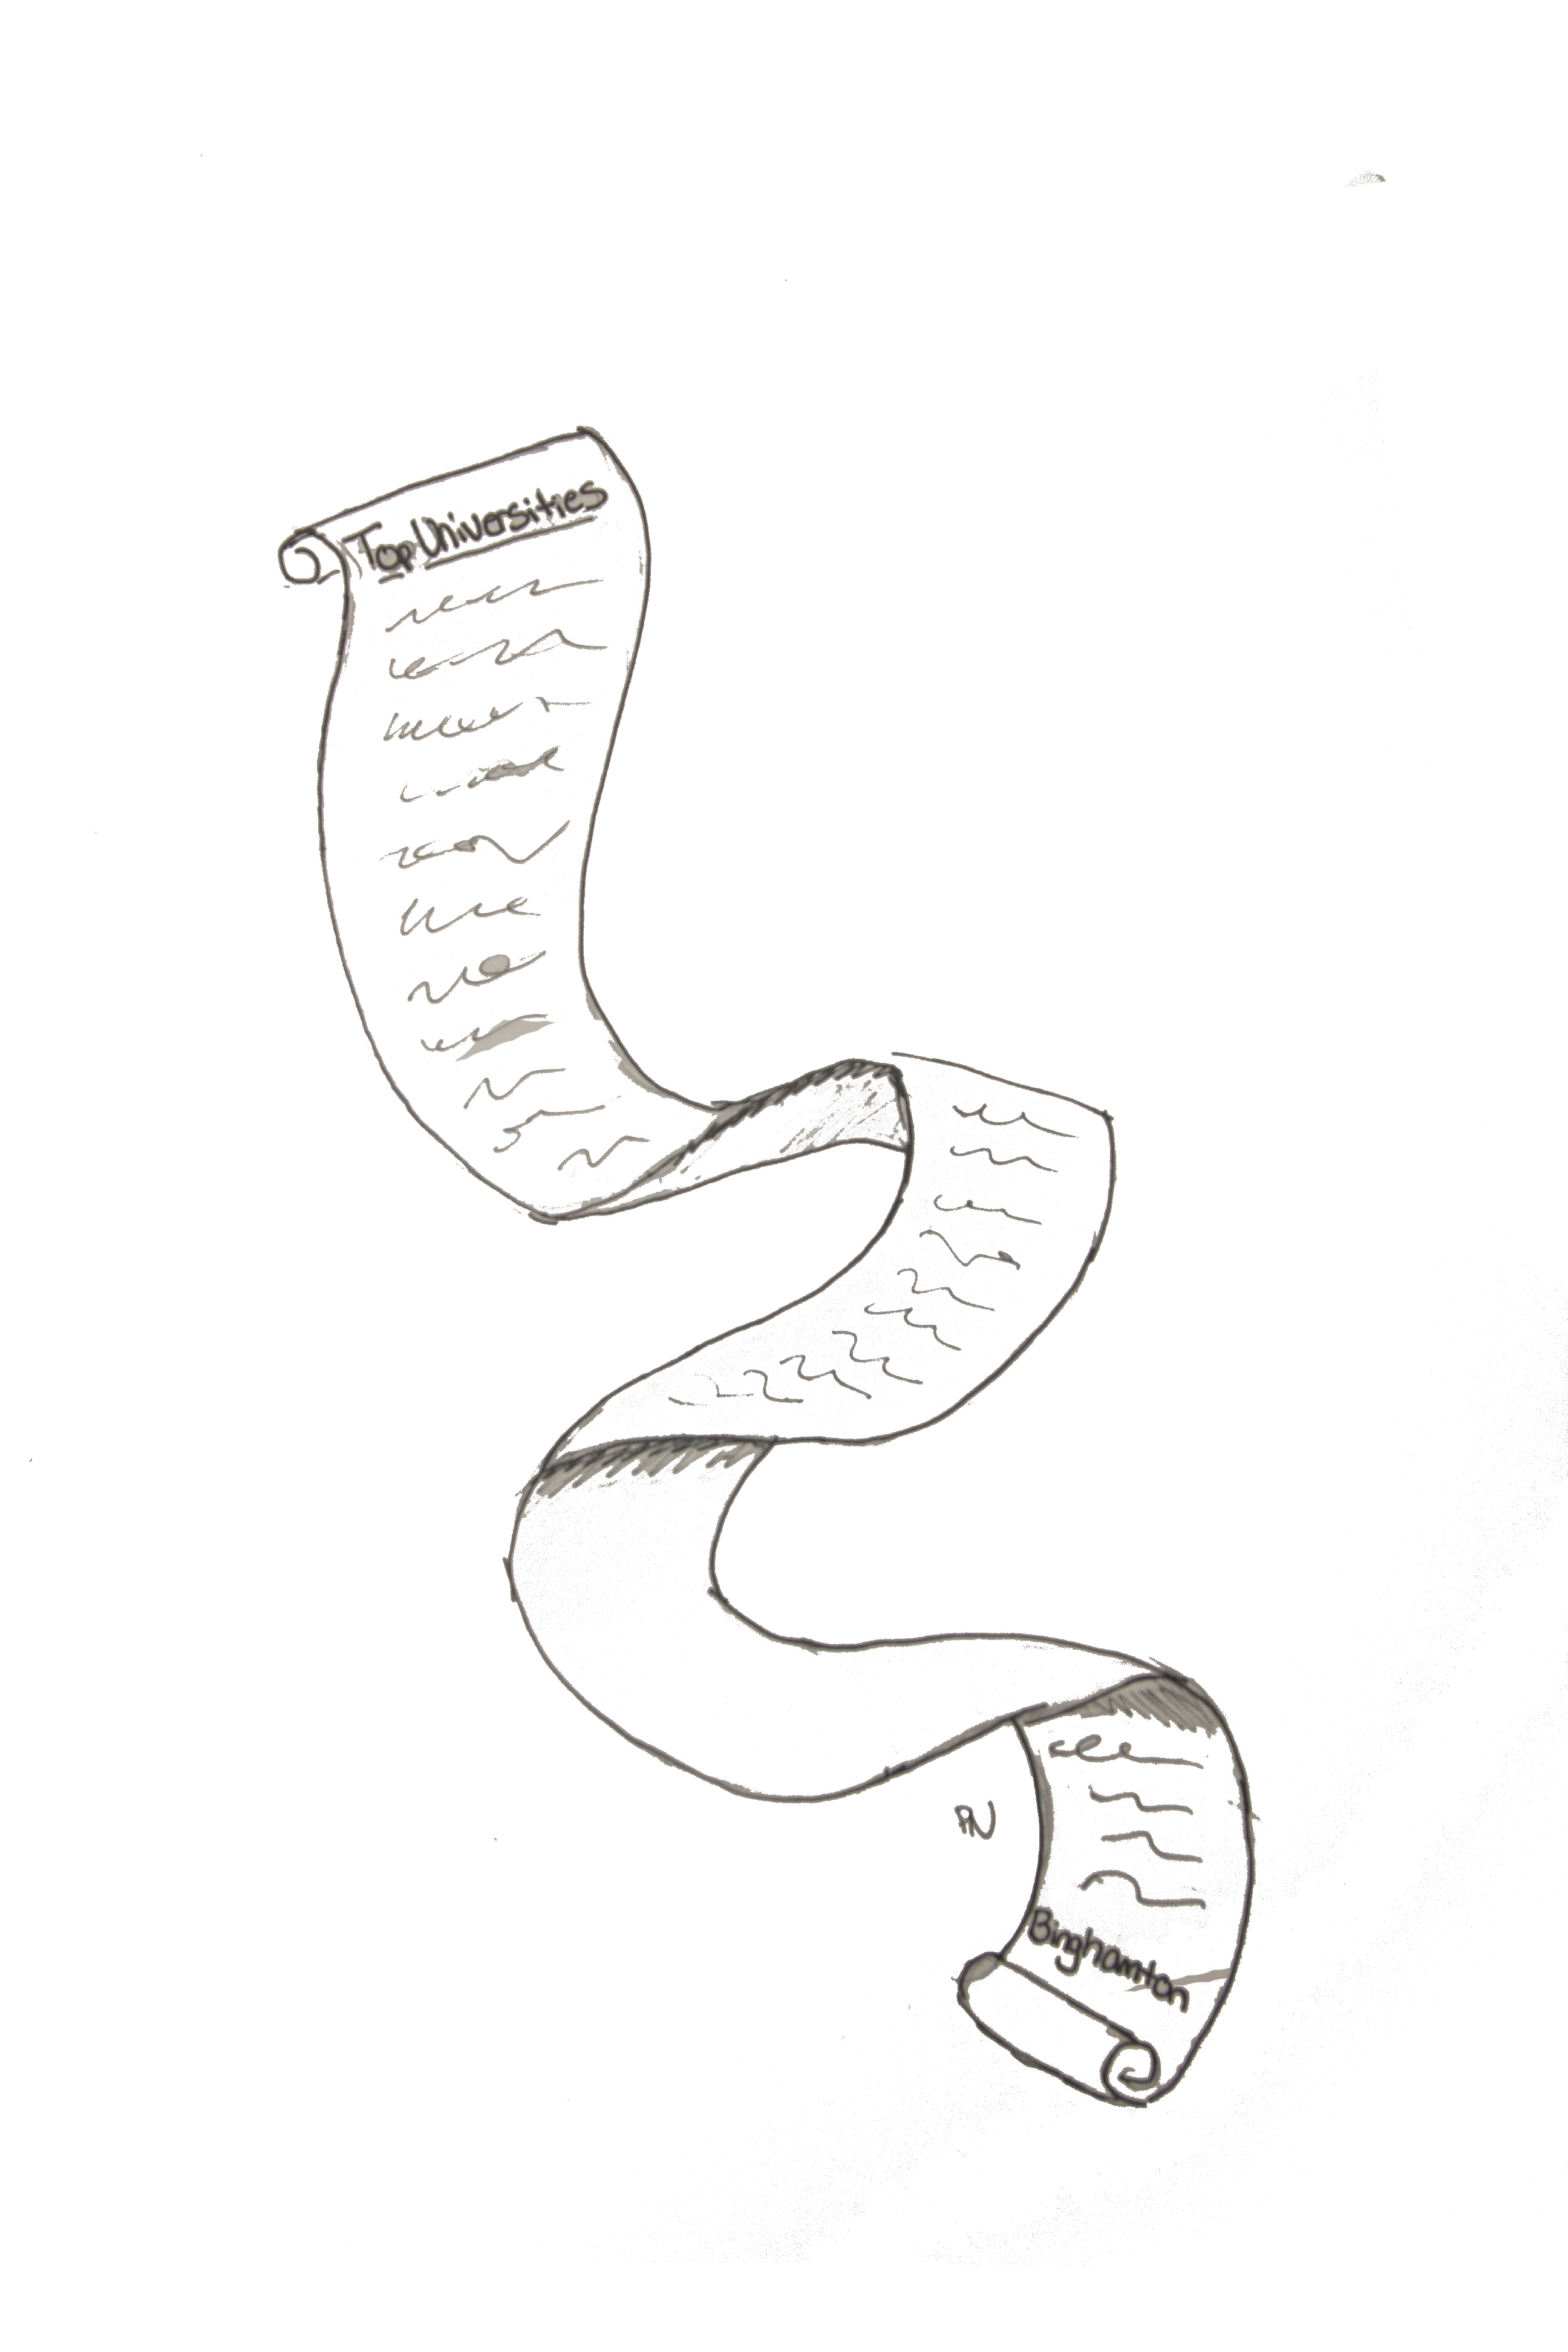 Top Universities
PN
Binghamton